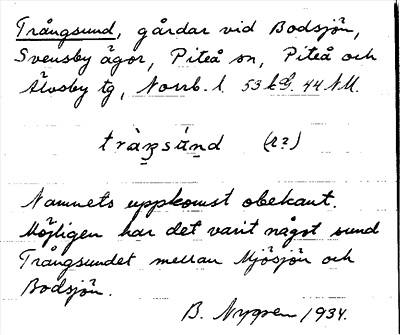 Trångsund, gårdar vid Bodsjön,
Svensby ägor, Piteå sn, Piteå och
Älvsby tg, Norrb. l. 53 44 NU.
tràŋsúnd (r?)
Namnets uppkomst obekant.
Möjligen har det varit något sund
Trångsundet mellan Mjösjön och
Bodsjön.
B. Nygren 1934.